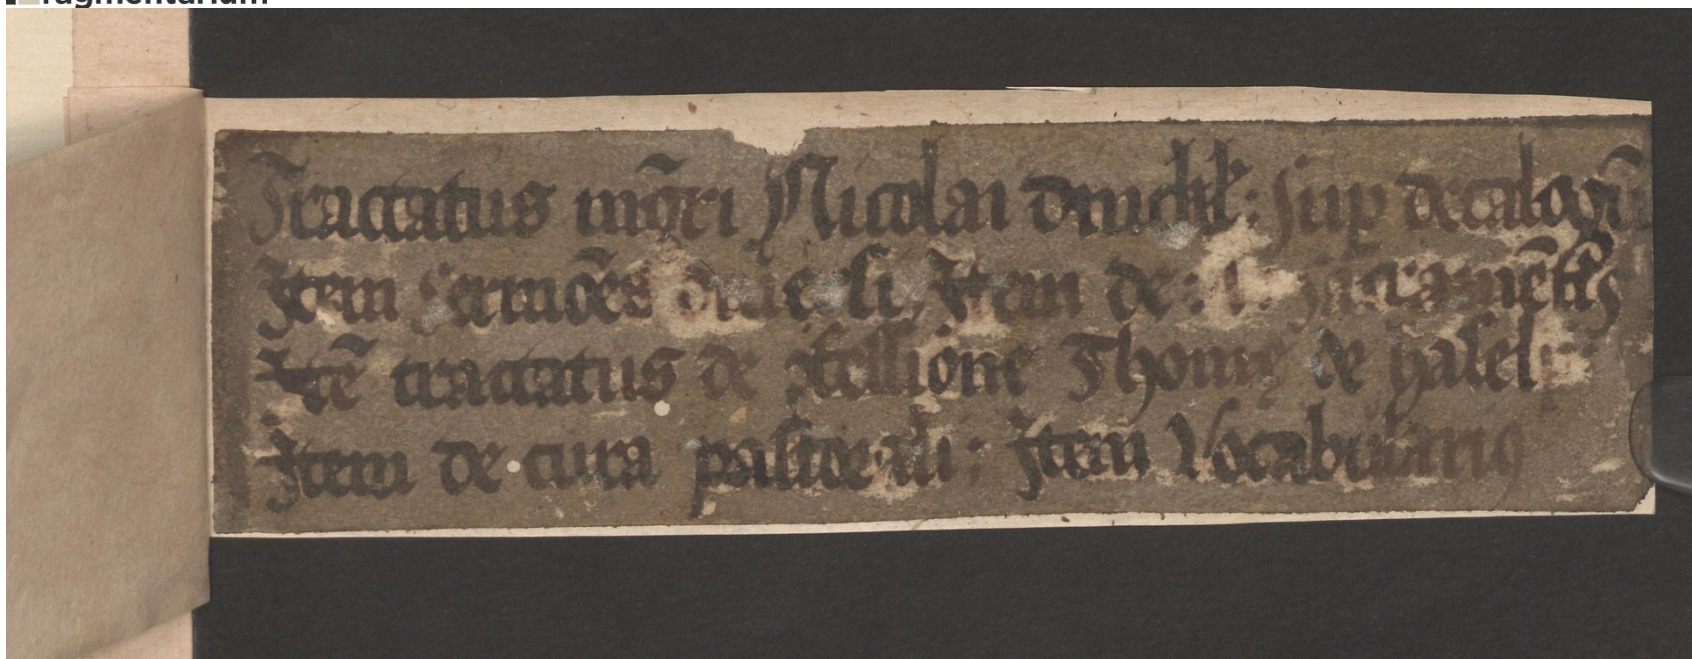 Tractatus mg̃ri Nicolai dinchl': sup decalogũ
Item sermões Item de: sacramẽtis
Itẽ tractatus de ꝯfessione Thome de hasel
Item de cura pastorali: Item Vocabulariꝰ